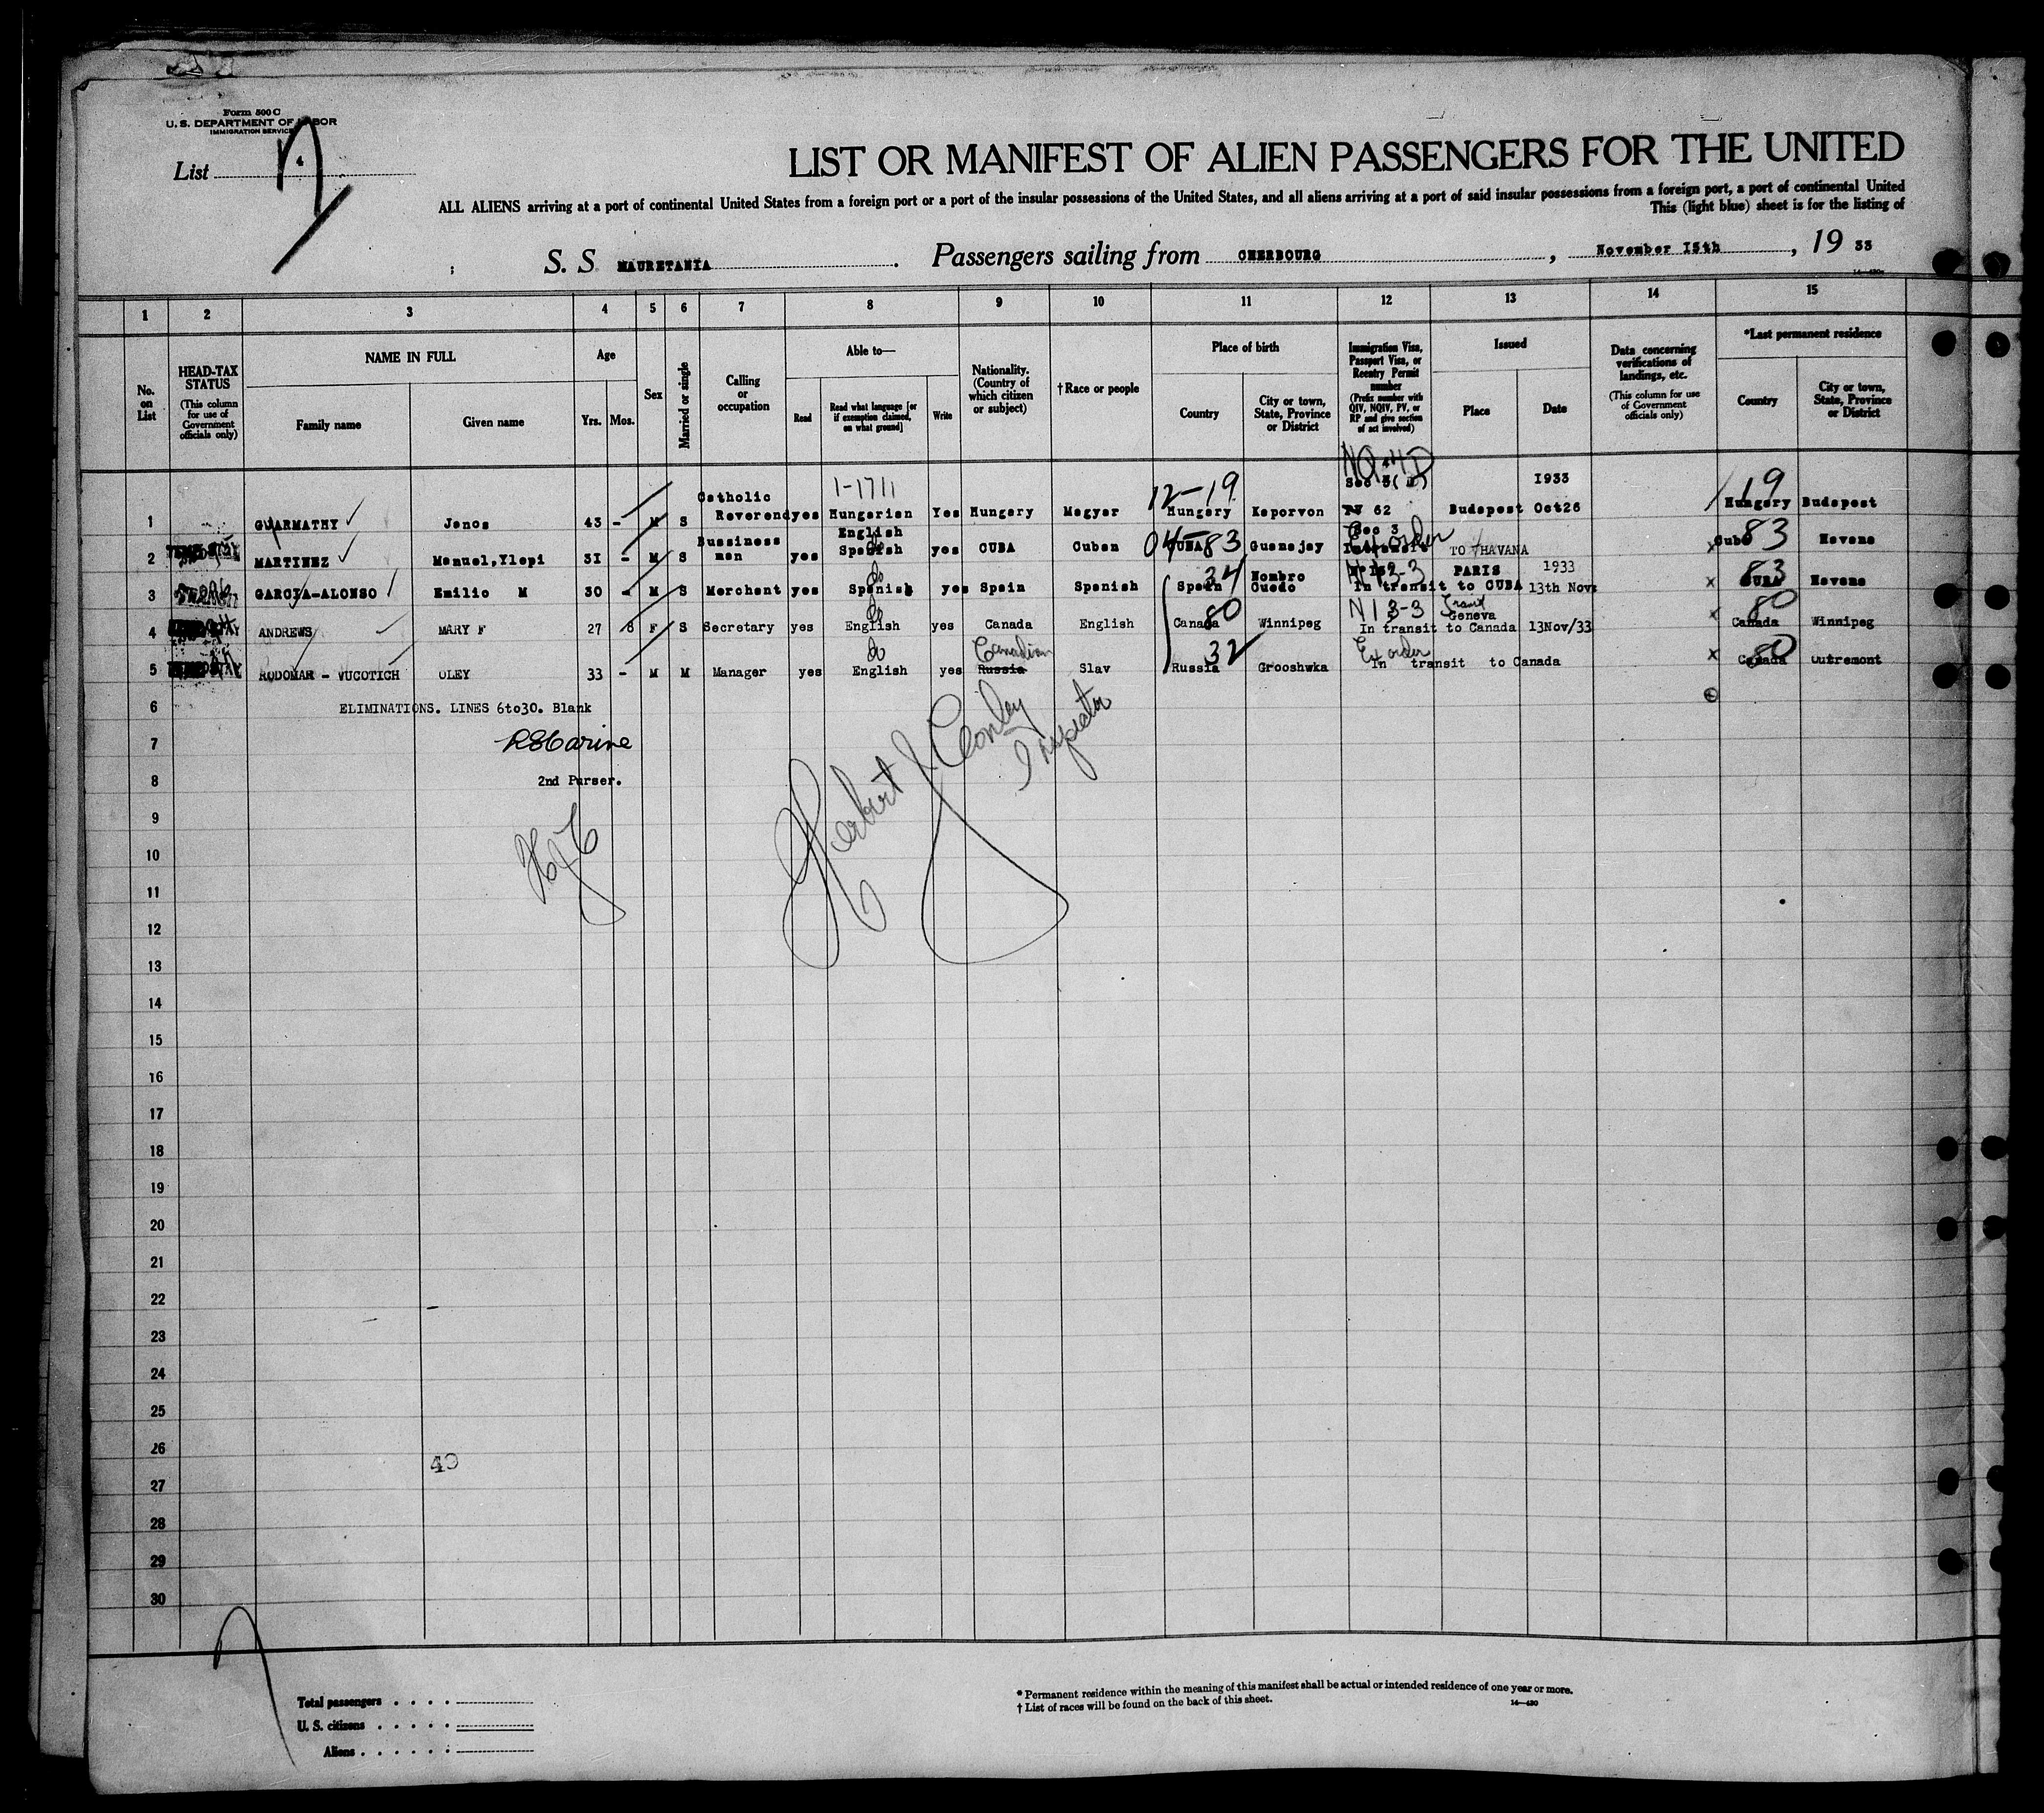 Form 500 C
U. S. DEPARTMENT OF LABOR
IMMIGRATION SERVICE
List 4
LIST OR MANIFEST OF ALIEN PASSENGERS FOR THE UNITED
ALL ALIENS arriving at a port of continental United States from a foreign port or a port of the insular possessions of the United States, and all aliens arriving at a port of said insular possessions from a foreign port, a port of continental United
This (light blue) sheet is for the listing of
S. S MAURETANIA. Passengers sailing from CHERBOURG, November 15th, 19 33
14—430
1 2 3 4 5 6 7 8 9 10 11 12 13 14 15
No. on List
HEAD-TAX STATUS
(This column for use of Government officials only)
NAME IN FULL
Family name Given name
Age
Yrs. Mos.
Sex
Married or single
Calling or occupation
Able to—
Read
Read what language [or if exemption claimed, on what ground]
Write
Nationality. (Country of which citizen or subject)
† Race or people
Place of birth
Country
City or town, State, Province or District
Immigration Visa, Passport Visa, or Reentry Permit number
(Prefix number with QIV, NQIV, PV, or RP and give section of act involved)
Issued
Place Date
Data concerning verifications of landings, etc.
(This column for use of Government officials only)
*Last permanent residence
Country
City or town, State, Province or District
1 GUARMATHY Janos 43 - M S Catholic Reverend yes Hungarian English Yes Hungary Magyar 12-19 Hungary Kaporvon 62 Budapest Oct26 1933 19 Hungary Budapest
1-1711
2 MARTINEZ Manuel,Ylepi 31 - M S Bussiness man yes Spanish yes CUBA Cuban 04-83 CUBA Guanajay Sec 3 Ex order TO HAVANA x Cuba 83 Havana
3 GARCIA-ALONSO Emilio M 30 - M S Merchant yes Spanish yes Spain Spanish 34 Spain Nombro Ouedo In transit to CUBA PARIS 1933 13th Nov: x CUBA 83 Havana
4 ANDREWS MARY F 27 8 F S Secretary yes English yes Canada English 80 Canada Winnipeg 3-3 Transit Geneva In transit to Canada 13Nov/33 x 80 Canada Winnipeg
5 RODOMAR - VUCOTICH OLEY 33 - M M Manager yes English yes Canadian Russia Slav 32 Russia Grooshwka Ex order In transit to Canada x 80 Canada Outremont
6 ELIMINATIONS. LINES 6to30. Blank
7
8 2nd Purser.
Herbert J Conley
Inspector
HJC
9
10
11
12
13
14
15
16
17
18
19
20
21
22
23
24
25
26
40
27
28
29
30
Total passengers . . . .
U. S. citizens . . . . .
Aliens . . . . . .
* Permanent residence within the meaning of this manifest shall be actual or intended residence of one year or more.
† List of races will be found on the back of this sheet. 14—430